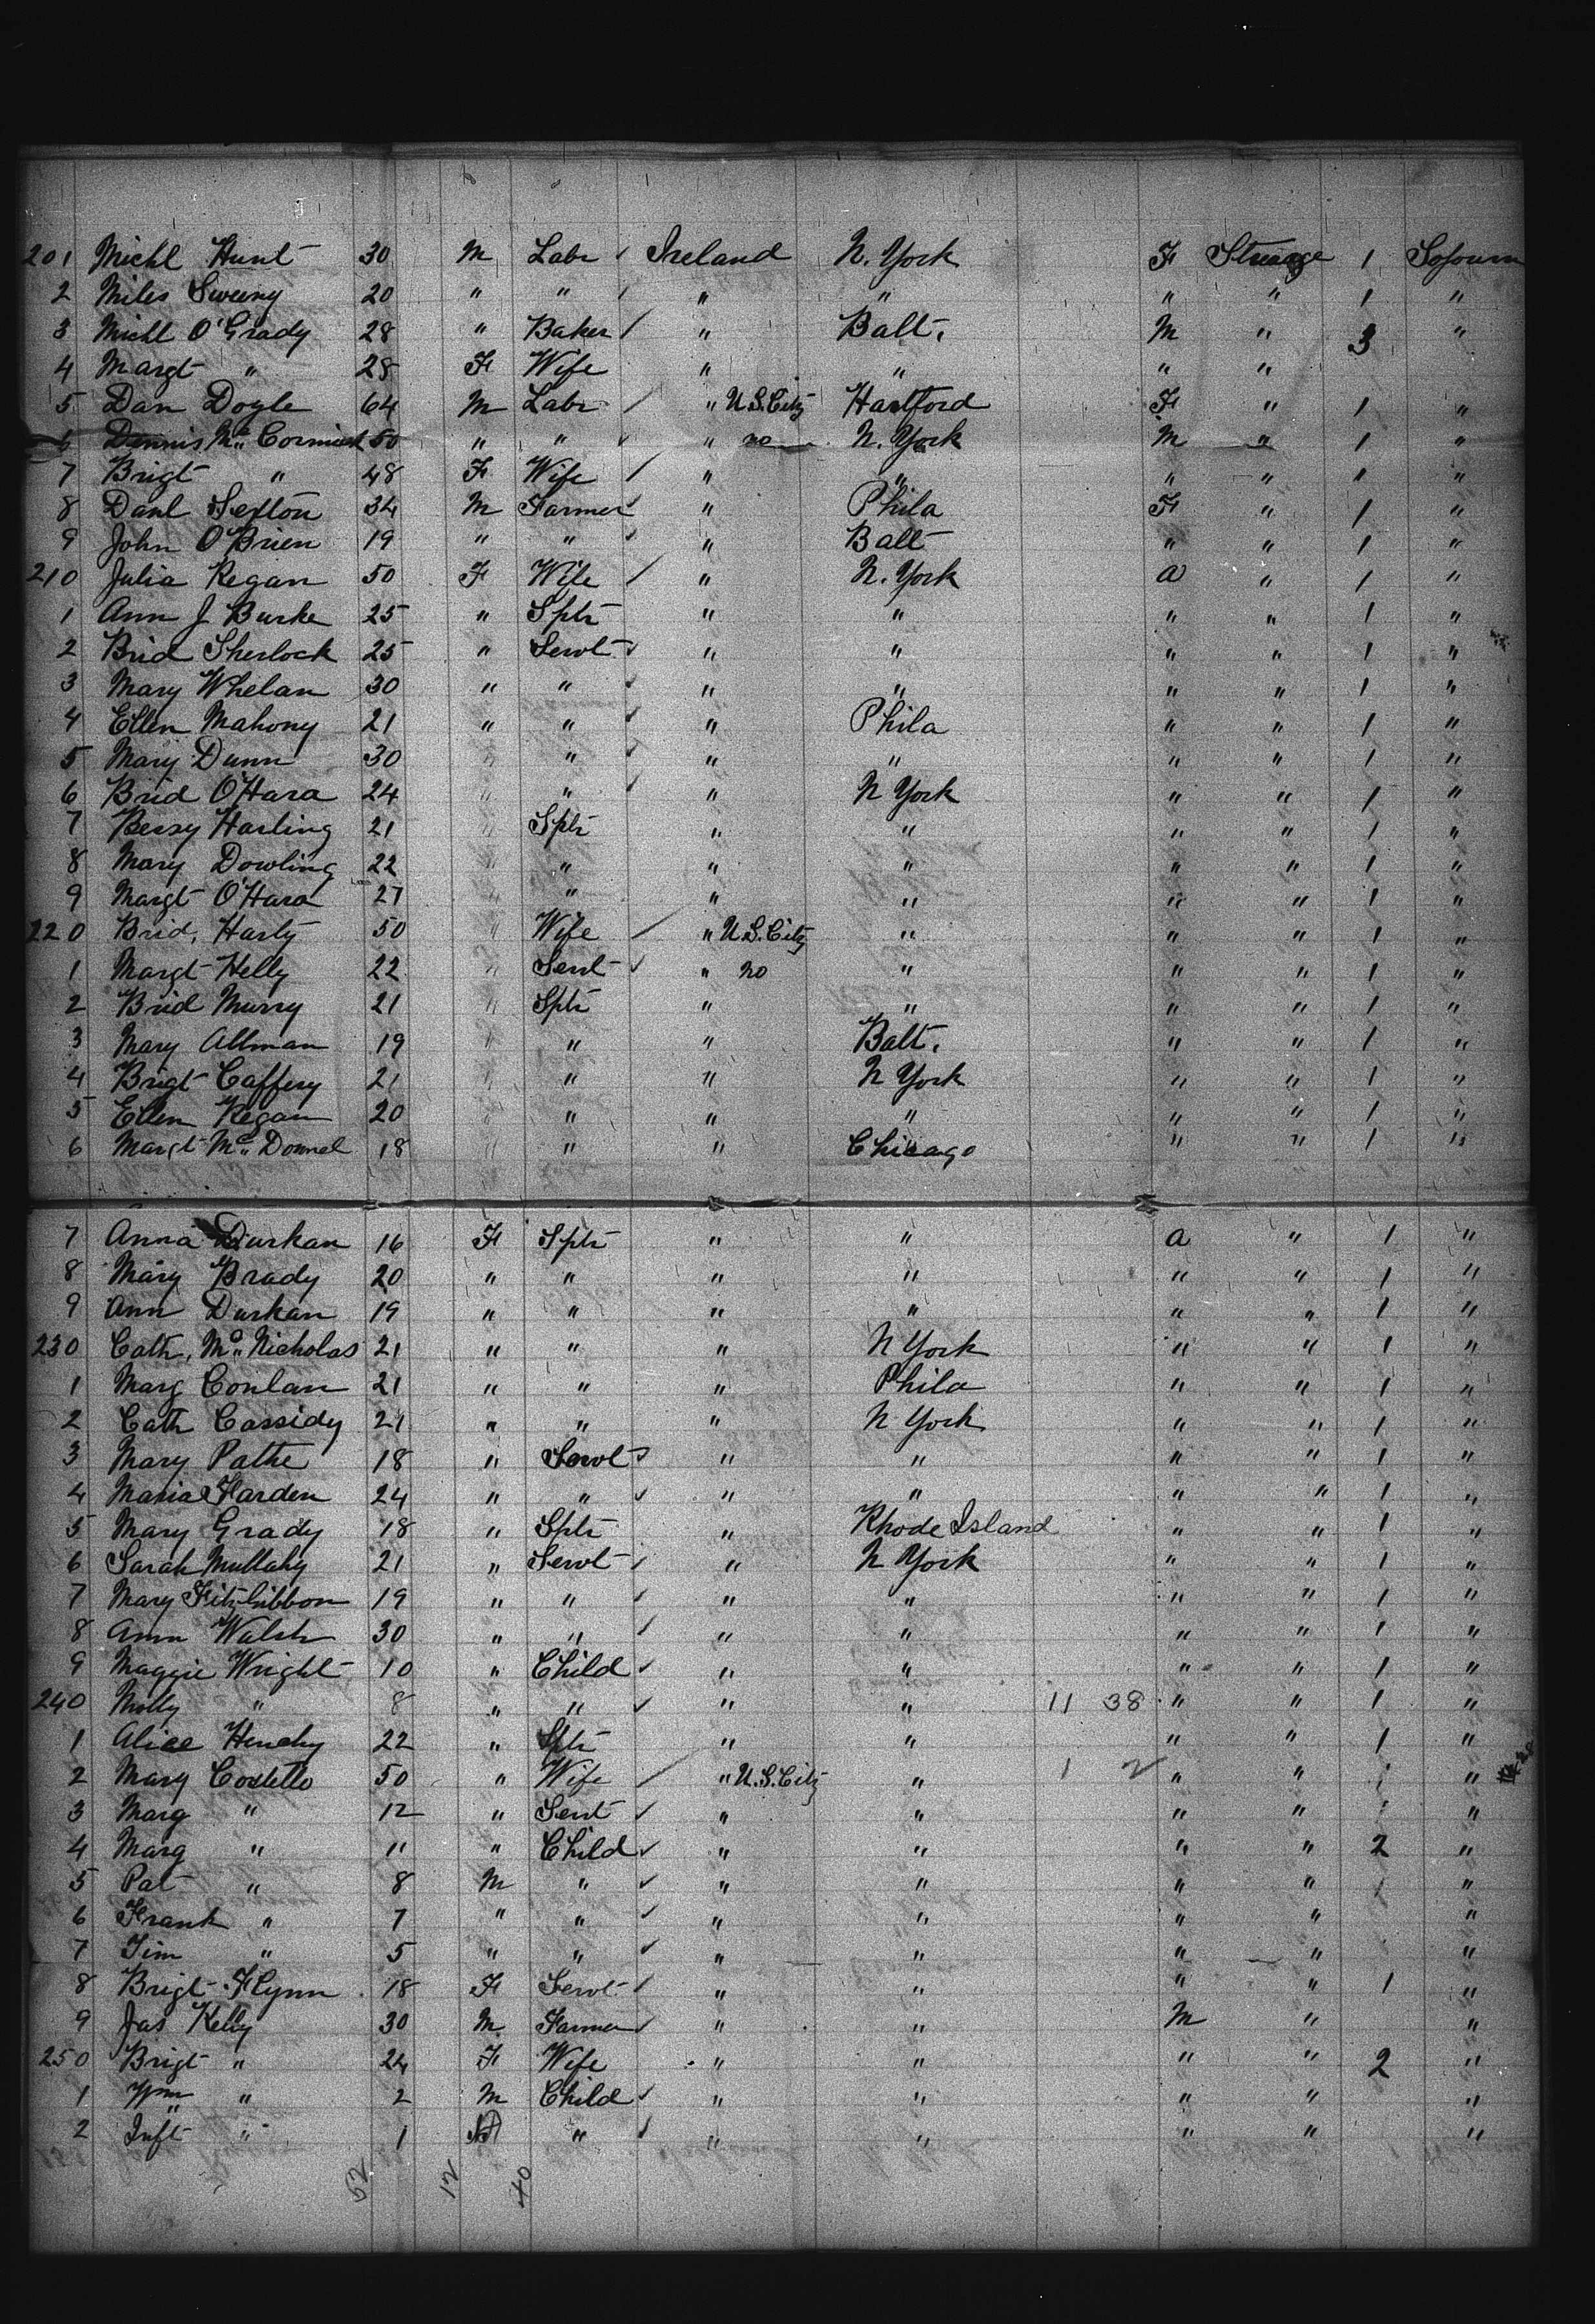 201 Michl Hunt 30 M Labr Ireland N. York F Steerage 1 Sojourn
2 Miles Sweeny 20 " " " " " " 1 "
3 Michl O'Grady 28 " Baker " Balt. M " 3 "
4 Margt " 28 F Wife " " " "
5 Dan Doyle 64 M Labr " U.S. Citz Hartford F " 1 "
6 Dennis Mc Cormick 50 " " " no N. York M " 1 "
7 Brigt " 48 F Wife " " " " " "
8 Danl Sexton 34 M Farmer " Phila F " 1 "
9 John O'Brien 19 " " " Balt " " 1 "
210 Julia Regan 50 F Wife " N. York a " 1 "
1 Ann J Burke 25 " Sptr " " " " 1 "
2 Brid Sherlock 25 " Servt " " " " 1 "
3 Mary Whelan 30 " " " " " " 1 "
4 Ellen Mahony 21 " " " Phila " " 1 "
5 Mary Dunn 30 " " " " " " 1 "
6 Brid O'Hara 24 " " " N York " " 1 "
7 Bessy Harling 21 " Sptr " " " " 1 "
8 Mary Dowling 22 " " " " " " 1 "
9 Margt O'Hara 27 " " " " " " 1 "
220 Brid. Harty 50 " Wife " U.S. Citz " " " 1 "
1 Margt Helly 22 " Servt " no " " " 1 "
2 Brid Murry 21 " Sptr " " " " 1 "
3 Mary Allman 19 " " " Balt. " " 1 "
4 Brigt Caffery 21 " " " N York " " 1 "
5 Ellen Regan 20 " " " " " " 1 "
6 Margt Mc Donnel 18 " " " Chicago " " 1 "
7 Anna Durkan 16 F Sptr " " a " 1 "
8 Mary Brady 20 " " " " " " 1 "
9 Ann Durkan 19 " " " " " " 1 "
230 Cath. Mc Nicholas 21 " " " N York " " 1 "
1 Marg Conlan 21 " " " Phila " " 1 "
2 Cath Cassidy 21 " " " N York " " 1 "
3 Mary Pathe 18 " Servt " " " " 1 "
4 Maria Farden 24 " " " " " " 1 "
5 Mary Grady 18 " Sptr " Rhode Island " " 1 "
6 Sarah Mullahy 21 " Servt " N York " " 1 "
7 Mary Fitzgibbon 19 " " " " " " 1 "
8 Ann Walsh 30 " " " " " " 1 "
9 Maggie Wright 10 " Child " " " " 1 "
240 Molly " 8 " " " " 11 38 " " 1 "
1 Alice Henehy 22 " Sptr " " " " 1 "
2 Mary Costello 50 " Wife " U.S. Citz " 1 2 " " "
3 Marg " 12 " Servt " " " " "
4 Marg " 11 " Child " " " " 2 "
5 Pat " 8 M " " " " " "
6 Frank " 7 " " " " " " "
7 Jim " 5 " " " " " " "
8 Brigt Flynn 18 F Servt " " " " 1 "
9 Jas Kelly 30 M Farmer " " M " "
250 Brigt " 24 F Wife " " " " 2 "
1 Wm " 2 M Child " " " " "
2 Inft " 1 " " " " " "
52 12 40